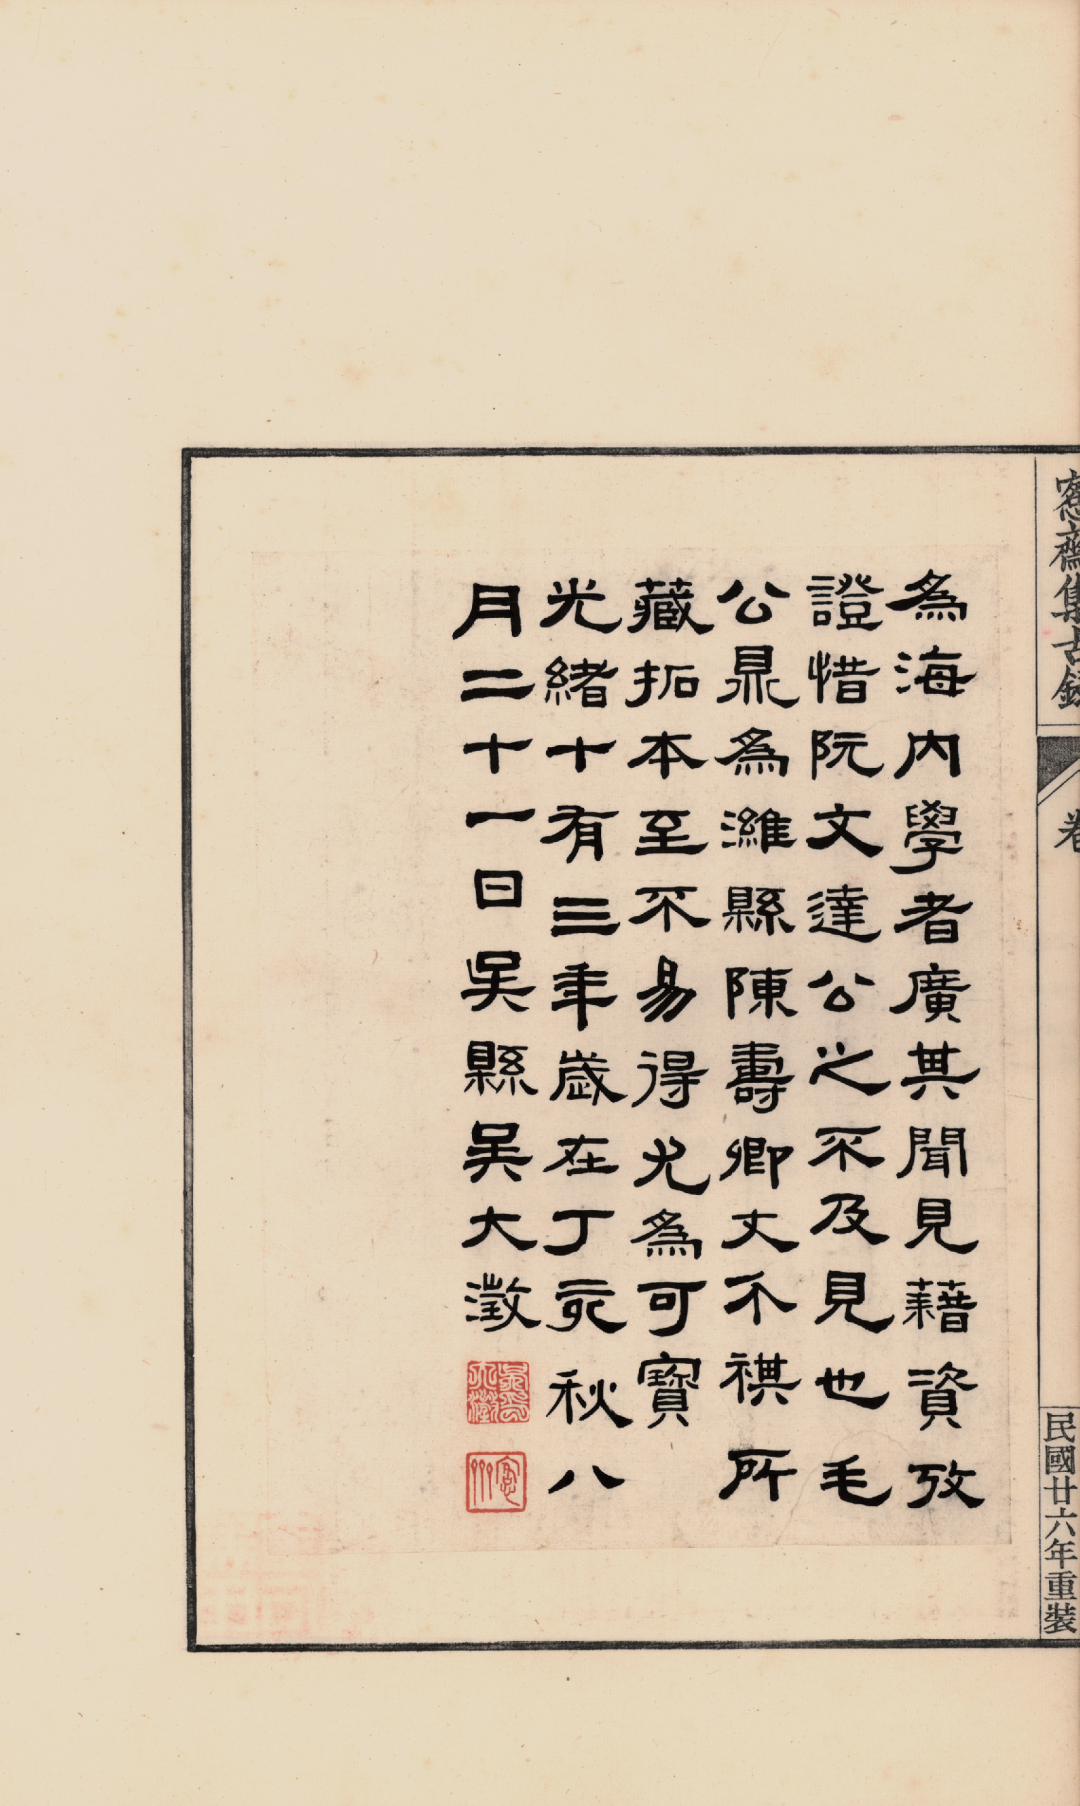 愙齋集古録
卷
民國廿六年重裝
為海内學者廣其聞見藉資攷
證惜阮文達公之不及見也毛
公鼎為濰縣陳壽卿丈不祺所
藏拓本至不易得尤為可寶
光緒十有三年歲在丁亥秋八
月二十一日吴縣吴大澂